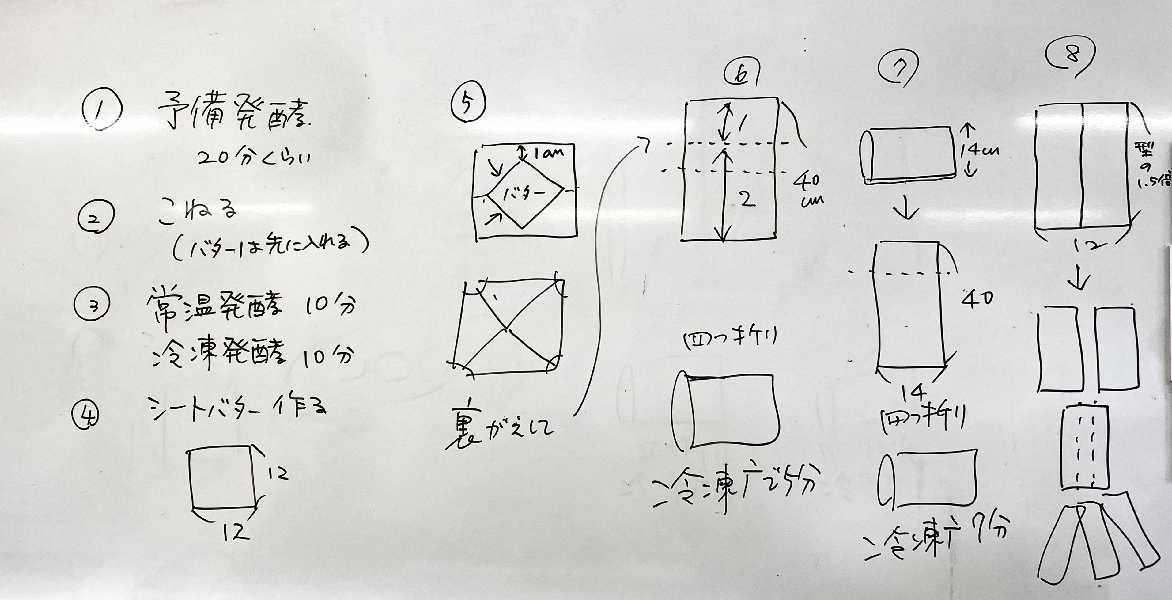 ① 予備発酵
20分くらい
② こねる
(バターは先に入れる)
③ 常温発酵 10分
冷凍発酵 10分
④ シートバター作る
12
12
⑤
1cm
バター
裏がえして
⑥
1
2
40
cm
四つ折り
冷凍庫で5分
⑦
14cm
40
14
四つ折り
冷凍庫7分
⑧
型の1.5倍
12